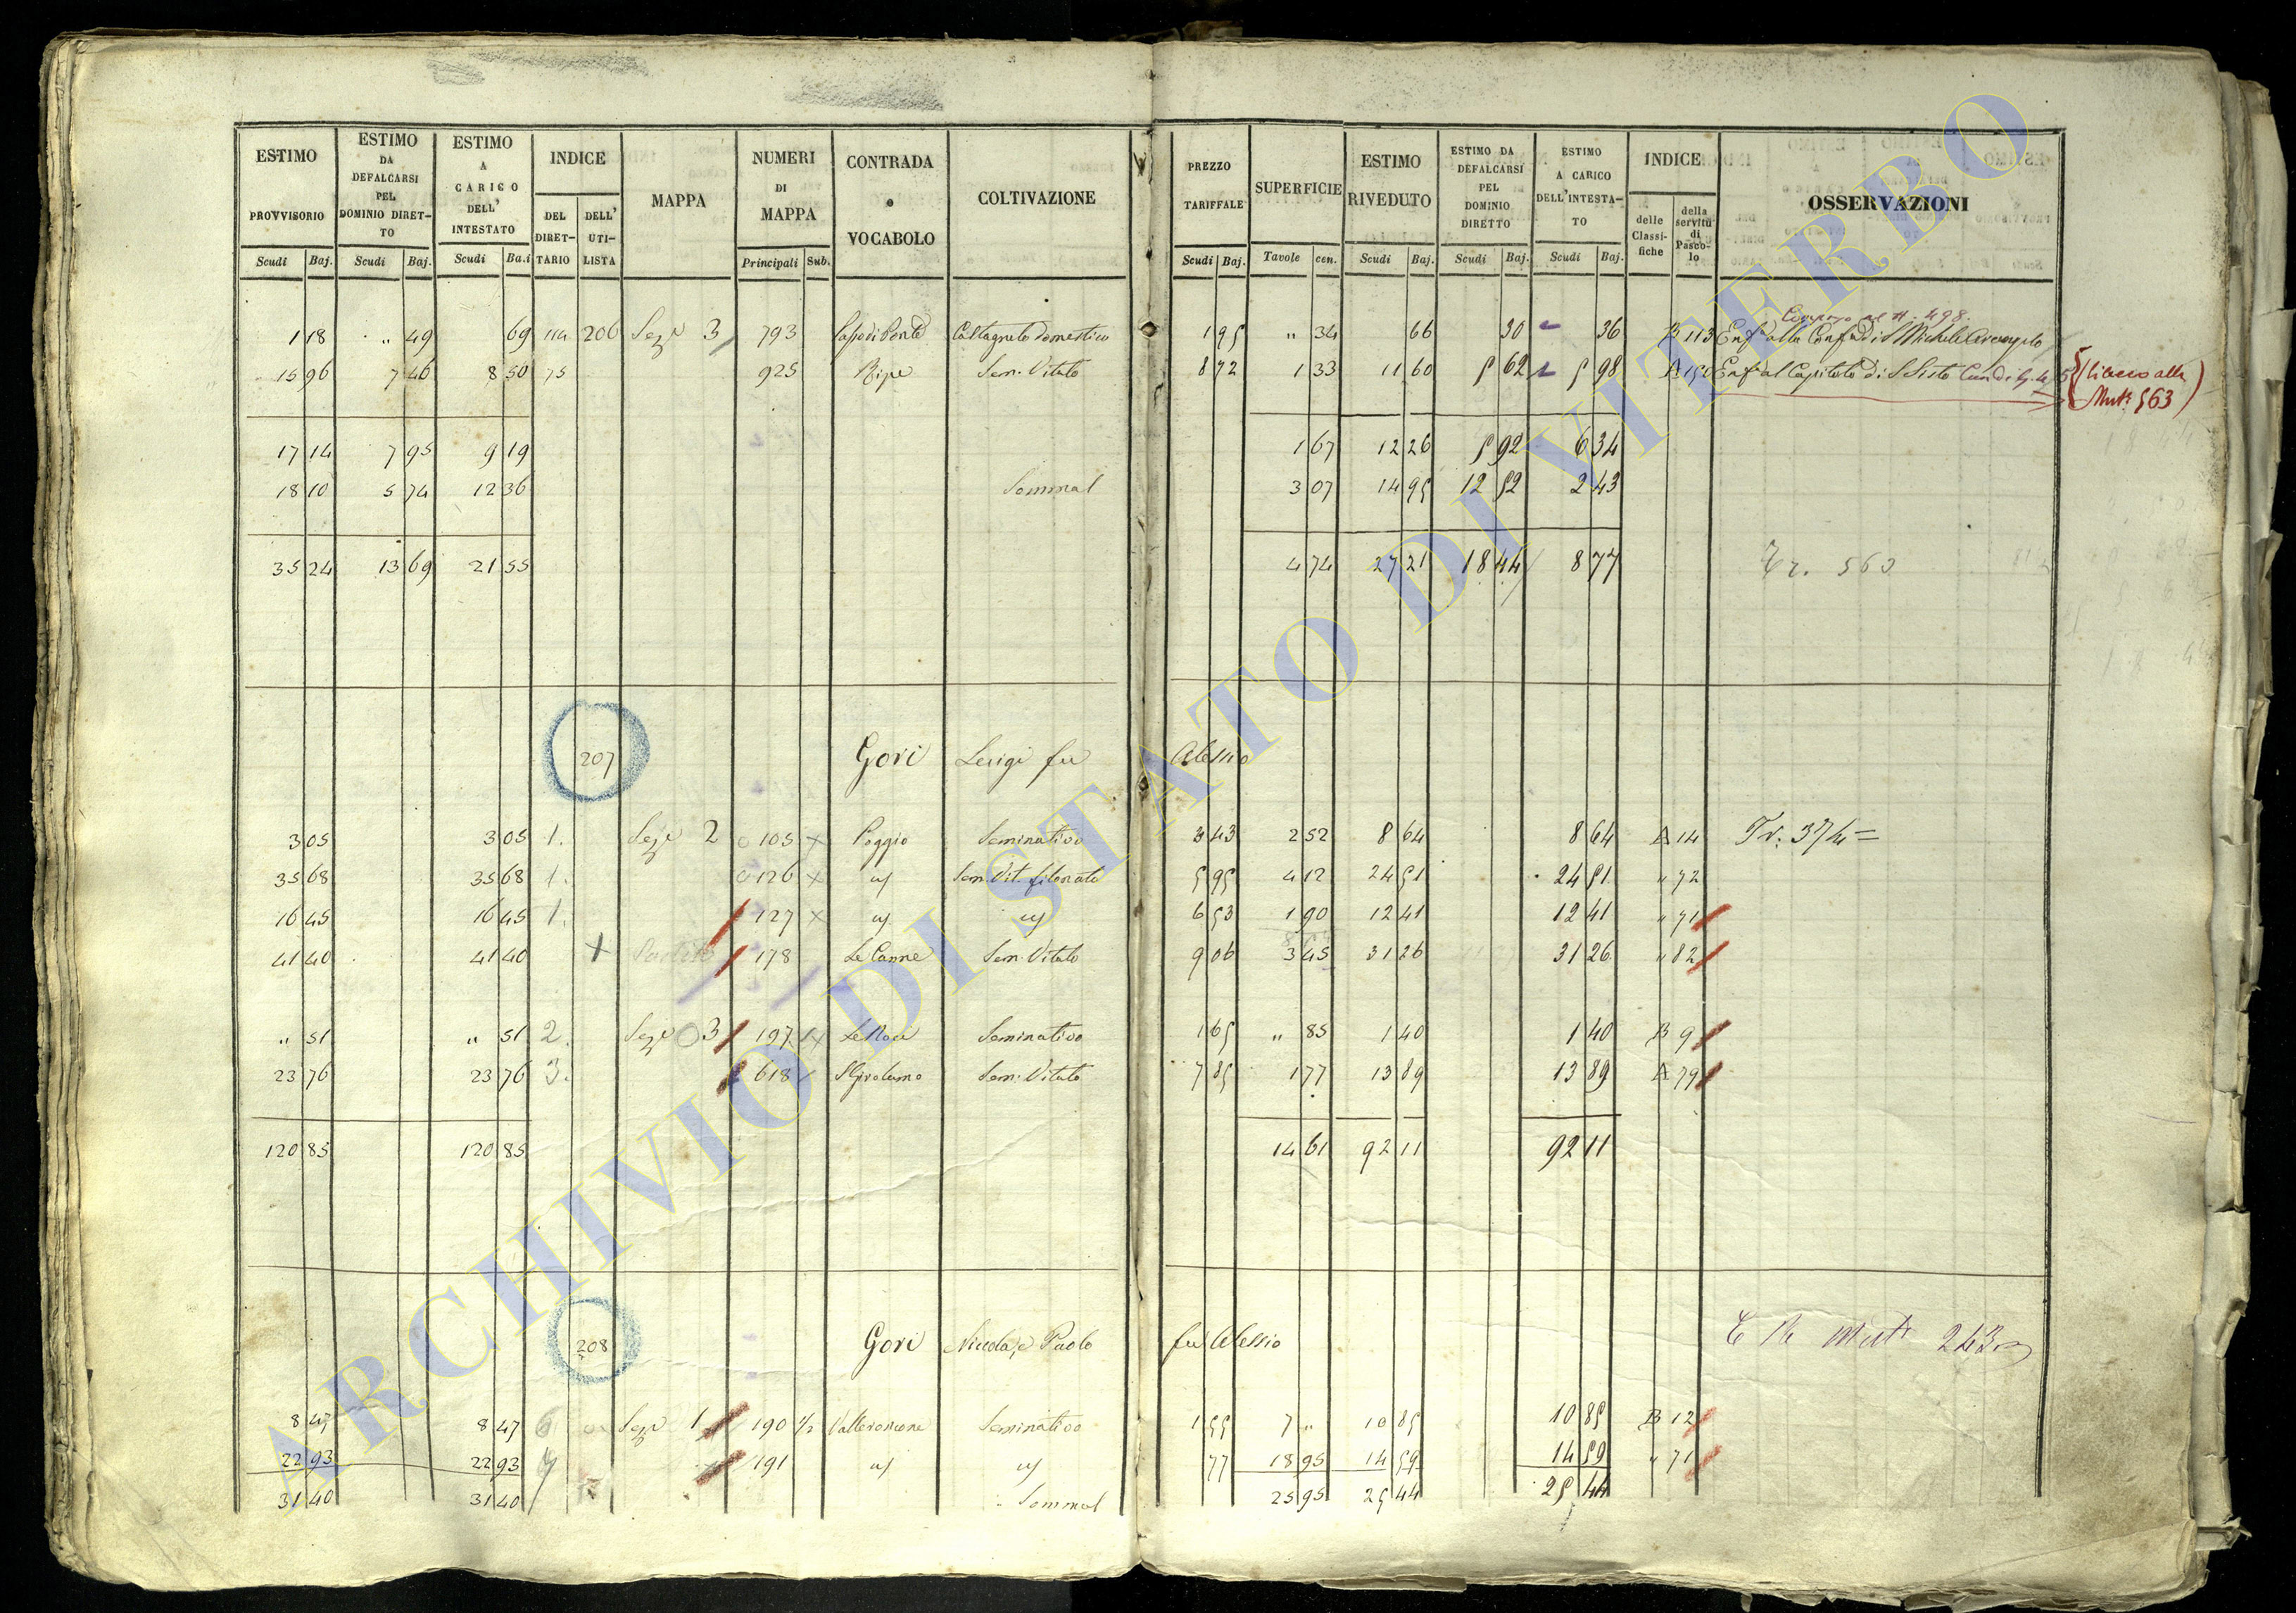 ESTIMO PROVVISORIO Scudi Baj.
ESTIMO DA DEFALCARSI PEL DOMINIO DIRETTO Scudi Baj.
ESTIMO A CARICO DELL' INTESTATO Scudi Ba.i
INDICE DEL DIRET-TARIO DELL' UTI-LISTA
MAPPA
NUMERI DI MAPPA Principali Sub.
CONTRADA o VOCABOLO
COLTIVAZIONE
PREZZO TARIFFALE Scudi Baj.
SUPERFICIE Tavole cen.
ESTIMO RIVEDUTO Scudi Baj.
ESTIMO DA DEFALCARSI PEL DOMINIO DIRETTO Scudi Baj.
ESTIMO A CARICO DELL'INTESTA-TO Scudi Baj.
INDICE delle Classi-fiche della servitù di Pasco-lo
OSSERVAZIONI
1 18 " 49 69 114 206 Sezе 3 793 Capo di Ponte Castagneto domestico 1 95 " 34 66 30 36 B 113 S Michele Arcangelo
15 96 7 46 8 50 75 925 Ripe Sem. Vitato 8 72 1 33 11 60 5 62 5 98 A 150 Enf. al Capitolo di S Sisto
Mut. 563
17 14 7 95 9 19 1 67 12 26 5 92 6 34
18 10 5 74 12 36 Sommal 3 07 14 95 12 52 2 43
35 24 13 69 21 55 4 74 27 21 18 44 8 77 Tr. 563
207 Gori Luigi fu Alessio
3 05 3 05 1. Seze 2 105 Poggio Seminativo 3 43 2 52 8 64 8 64 A 14 Tr: 374
35 68 35 68 1. 126 Sem. Vit. filonato 5 95 4 12 24 51 24 51 " 72
16 45 16 45 1. 127 6 53 1 90 12 41 12 41 " 71
41 40 41 40 178 Le Canne Sem. Vitato 9 06 3 45 31 26 31 26 " 82
" 51 " 51 2. Seze 3 197 Seminativo 1 65 " 85 1 40 1 40 B 9
23 76 23 76 3. 618 S Girolamo Sem. Vitato 7 85 1 77 13 89 13 89 A 79
120 85 120 85 14 61 92 11 92 11
208 Gori Niccola, e Paolo fu Alessio Mut 243
8 47 8 47 6 Seze 1 190 1/2 Valleroncone Seminativo 1 55 7 " 10 85 10 85 B 12
22 93 22 93 191 77 18 95 14 59 14 59 " 71
31 40 31 40 Sommal 25 95 25 44 25 44
ARCHIVIO DI STATO DI VITERBO